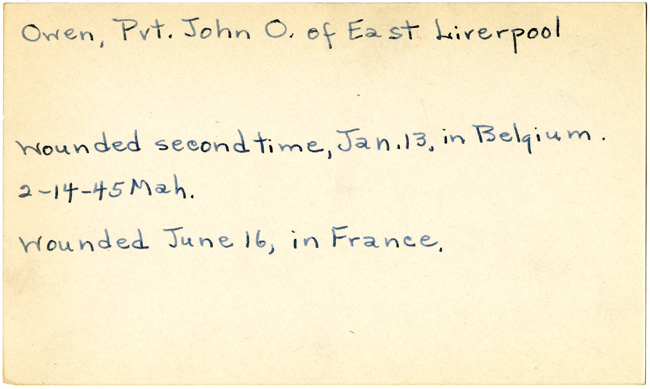 Owen, Pvt. John O. of East Liverpool
Wounded second time, Jan. 13, in Belgium.
2-14-45 Mah.
Wounded June 16, in France.